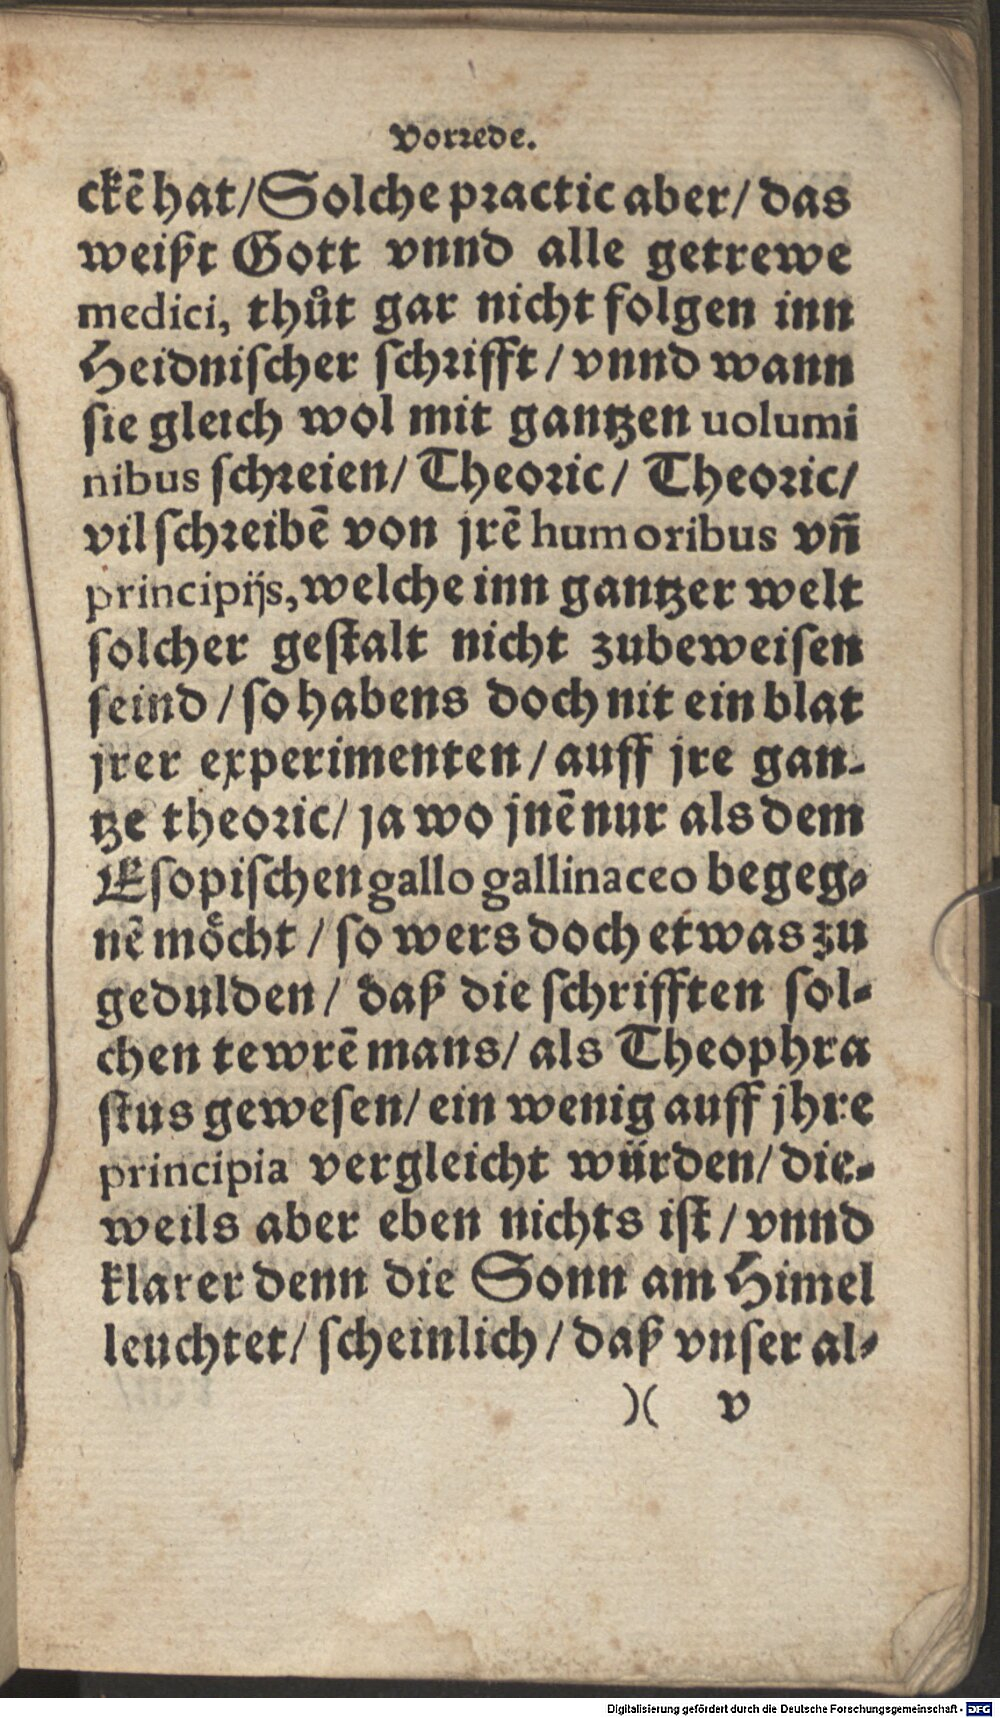 Vorrede.
ckẽ hat/Solche practic aber/ das
weißt Gott vnnd alle getrewe
medici, thůt gar nicht folgen inn
Heidnischer schrifft/ vnnd wann
sie gleich wol mit gantzen uolumi
nibus schreien/ Theoric/ Theoric/
vil schreibẽ von jrẽ humoribus vñ
principijs, welche inn gantzer welt
solcher gestalt nicht zubeweisen
seind/ so habens doch nit ein blat
jrer experimenten/ auff jre gan-
tze theoric/ ja wo jnẽ nur als dem
Esopischen gallo gallinaceo begeg-
nẽ moͤcht/ so wers doch etwas zu
gedulden/ daß die schrifften sol-
chen tewrẽ mans/ als Theophra
stus gewesen/ ein wenig auff jhre
principia vergleicht würden/ die-
weils aber eben nichts ist/ vnnd
klarer denn die Sonn am Himel
leuchtet/ scheinlich/ daß vnser al-
)( v
Digitalisierung gefördert durch die Deutsche Forschungsgemeinschaft - DFG